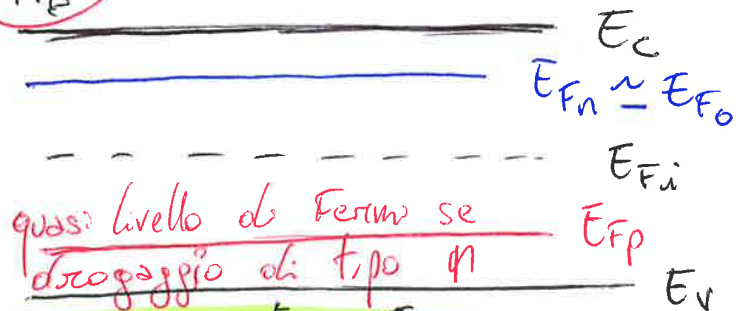 E_c
E_Fn ≃ E_Fo
E_Fi
quasi livello di Fermi se E_Fp
drogaggio di tipo n
E_v